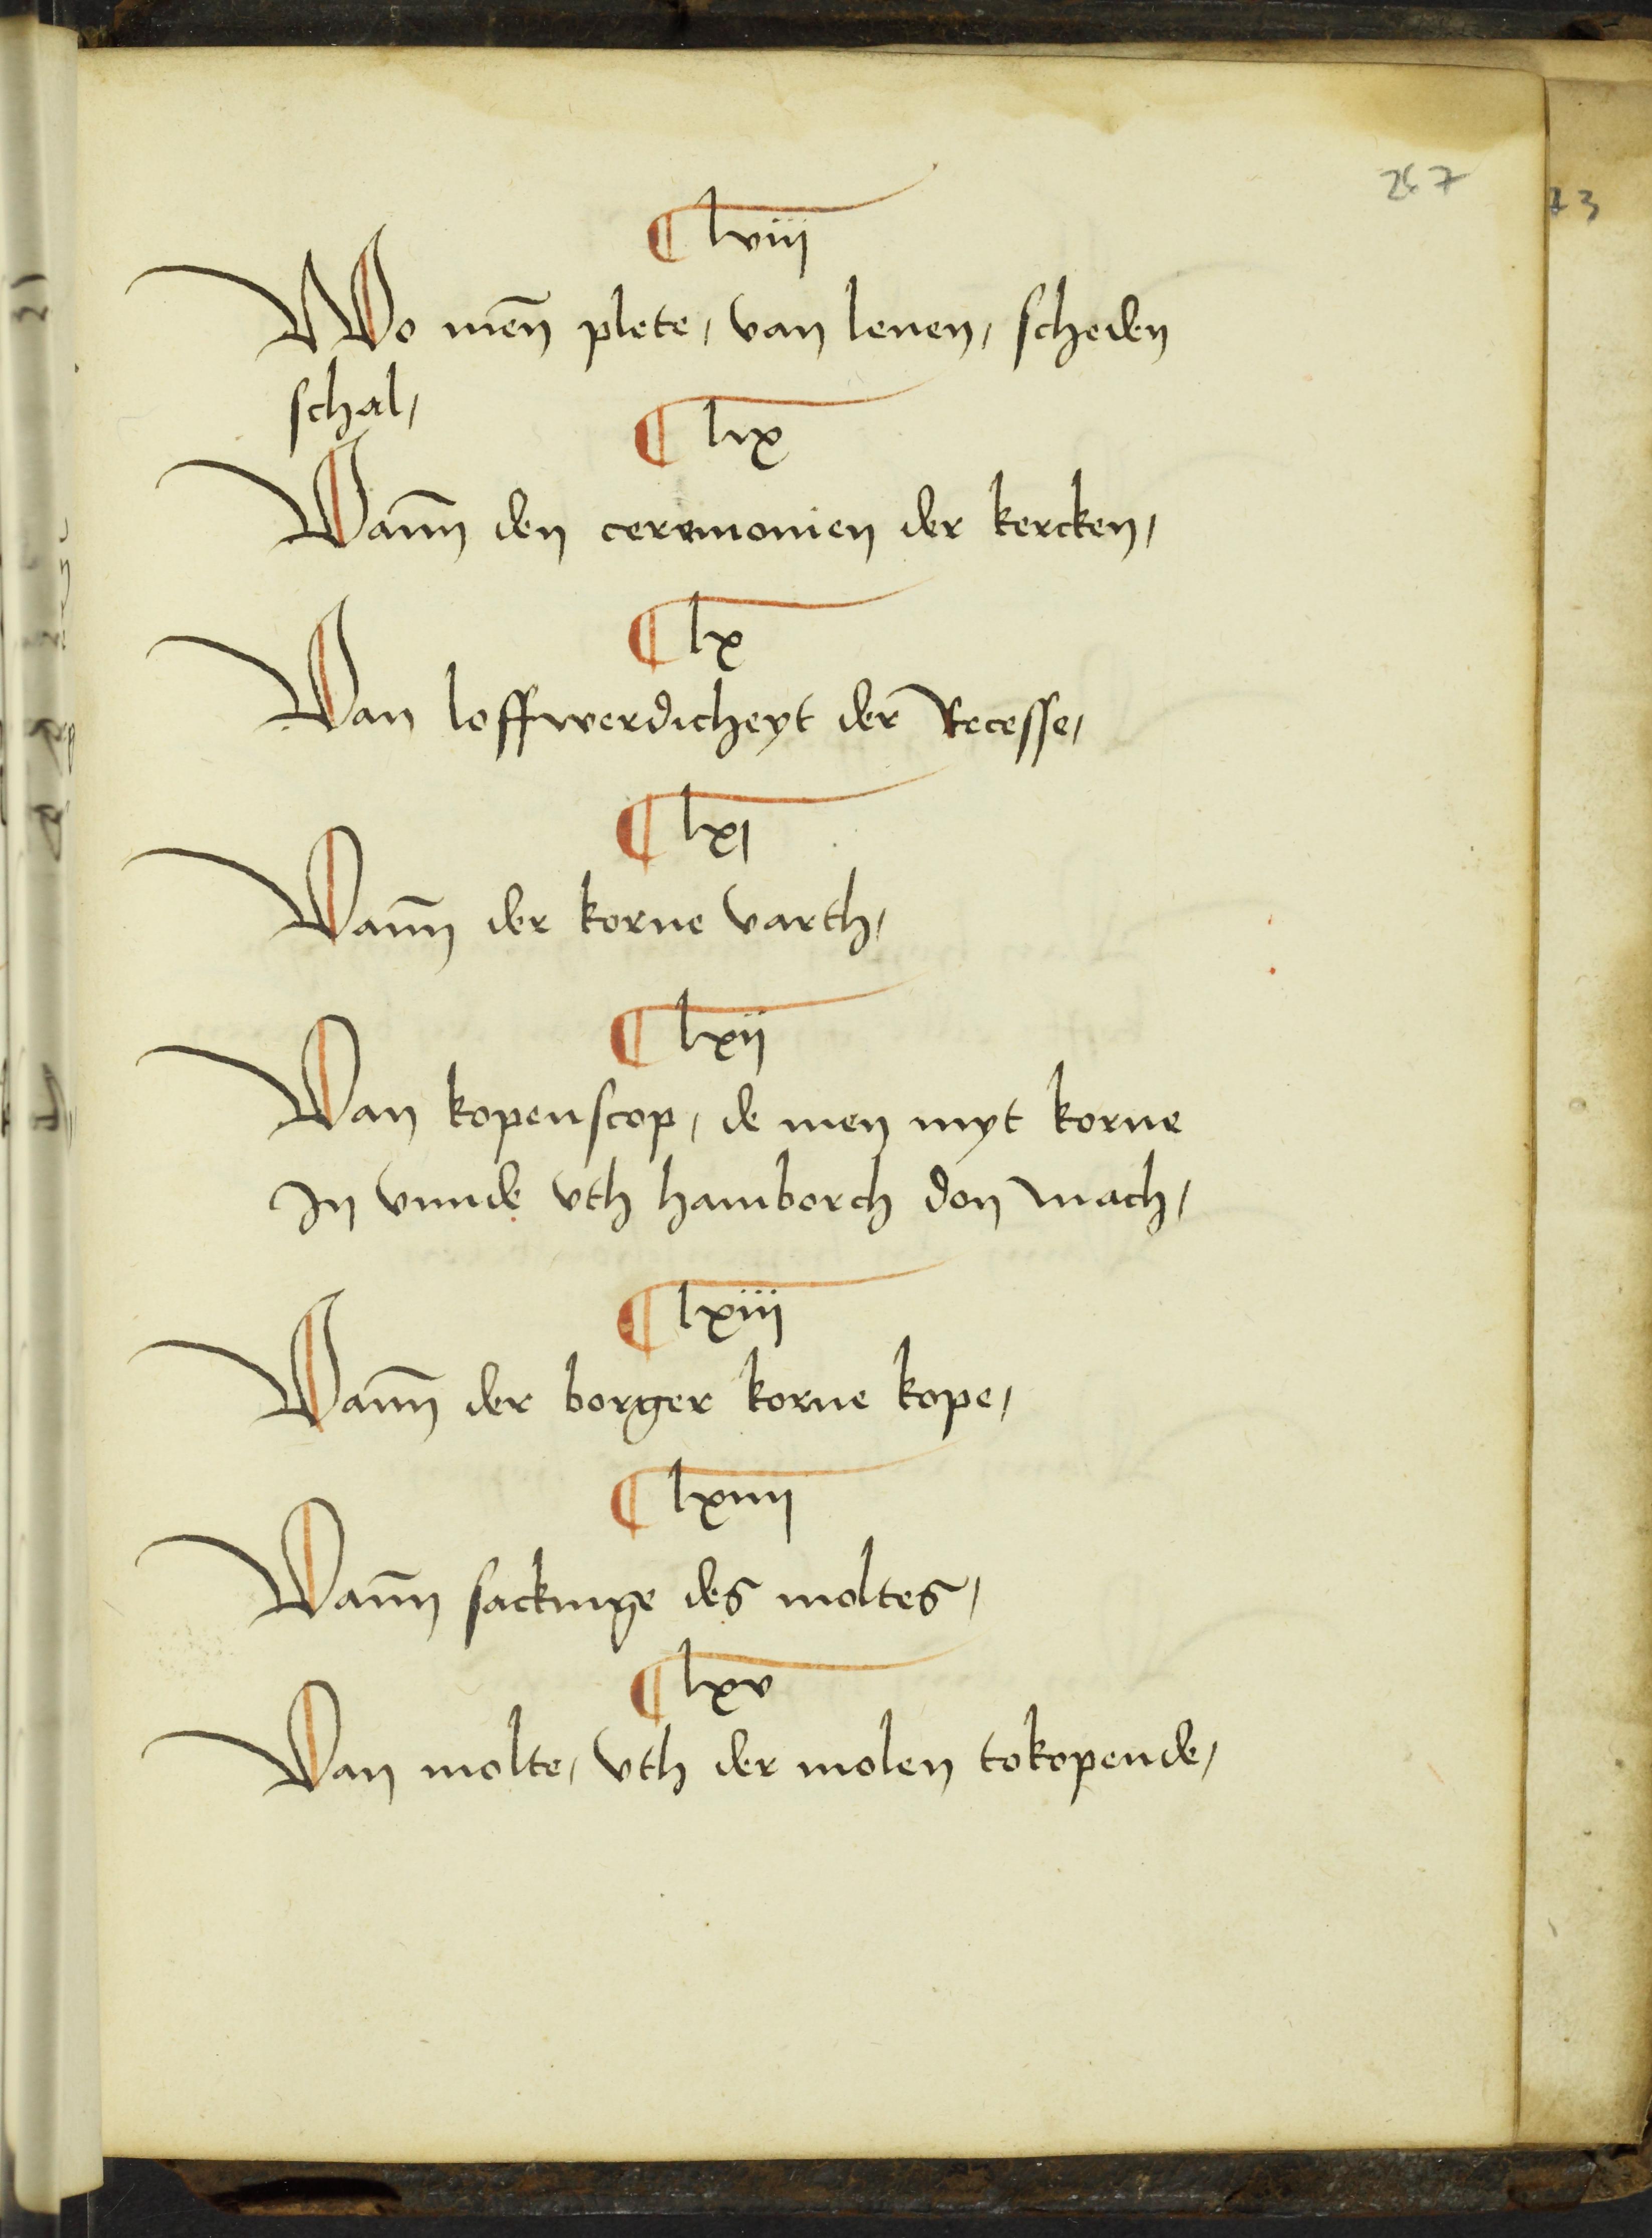 267
¶ lviii
Wo men̄ plete, van lenen, scheden
schal,
¶ lix
Vann̄ den ceremonien der kercken,
¶ lx
Van loffwerdicheyt der Recesse,
¶ lxi
Vann̄ der korne varth,
¶ lxii
Van kopenscop, de men myt korne
In vnnde vth hamborch don mach,
¶ lxiii
Vann̄ der borger korne kope,
¶ lxiiii
Vann̄ sackinge des moltes,
¶ lxv
Van molte, vth der molen tokopende,